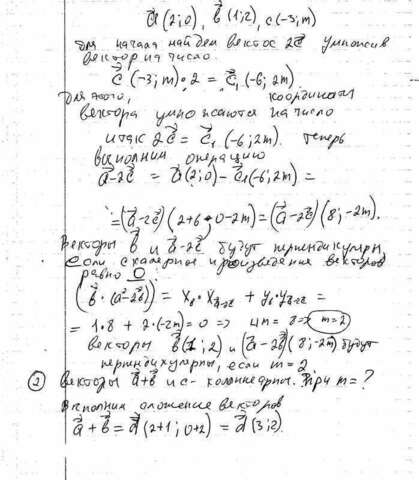 a⃗(2;0), b⃗(1;2), c(-3;m)
для начала найдем вектос 2c⃗ умножив
вектор на число.
c⃗(-3;m)·2 = c⃗₁(-6;2m).
Для этого, координаты
вектора умножаются на число
итак 2c⃗ = c⃗₁(-6;2m). теперь
выполним операцию
a⃗-2c⃗ = a⃗(2;0)-c⃗₁(-6;2m) =
=(a⃗-2c⃗)(2+6;0-2m)=(a⃗-2c⃗)(8;-2m).
Векторы b⃗ и a⃗-2c⃗ будут перпендикулярны,
если скалярное произведение векторов
равно 0.
(b⃗·(a⃗-2c⃗)) = x_b·x_a-2c + y_b·y_a-2c =
= 1·8 + 2·(-2m)=0 => 4m = 8 => m=2
векторы b⃗(1;2) и (a⃗-2c⃗)(8;-2m) будут
перпендикулярны, если m=2
2 векторы a⃗+b⃗ и c - коллинеарны. При m=?
Выполним сложение векторов
a⃗+b⃗ = d⃗(2+1;0+2) = d⃗(3;2).